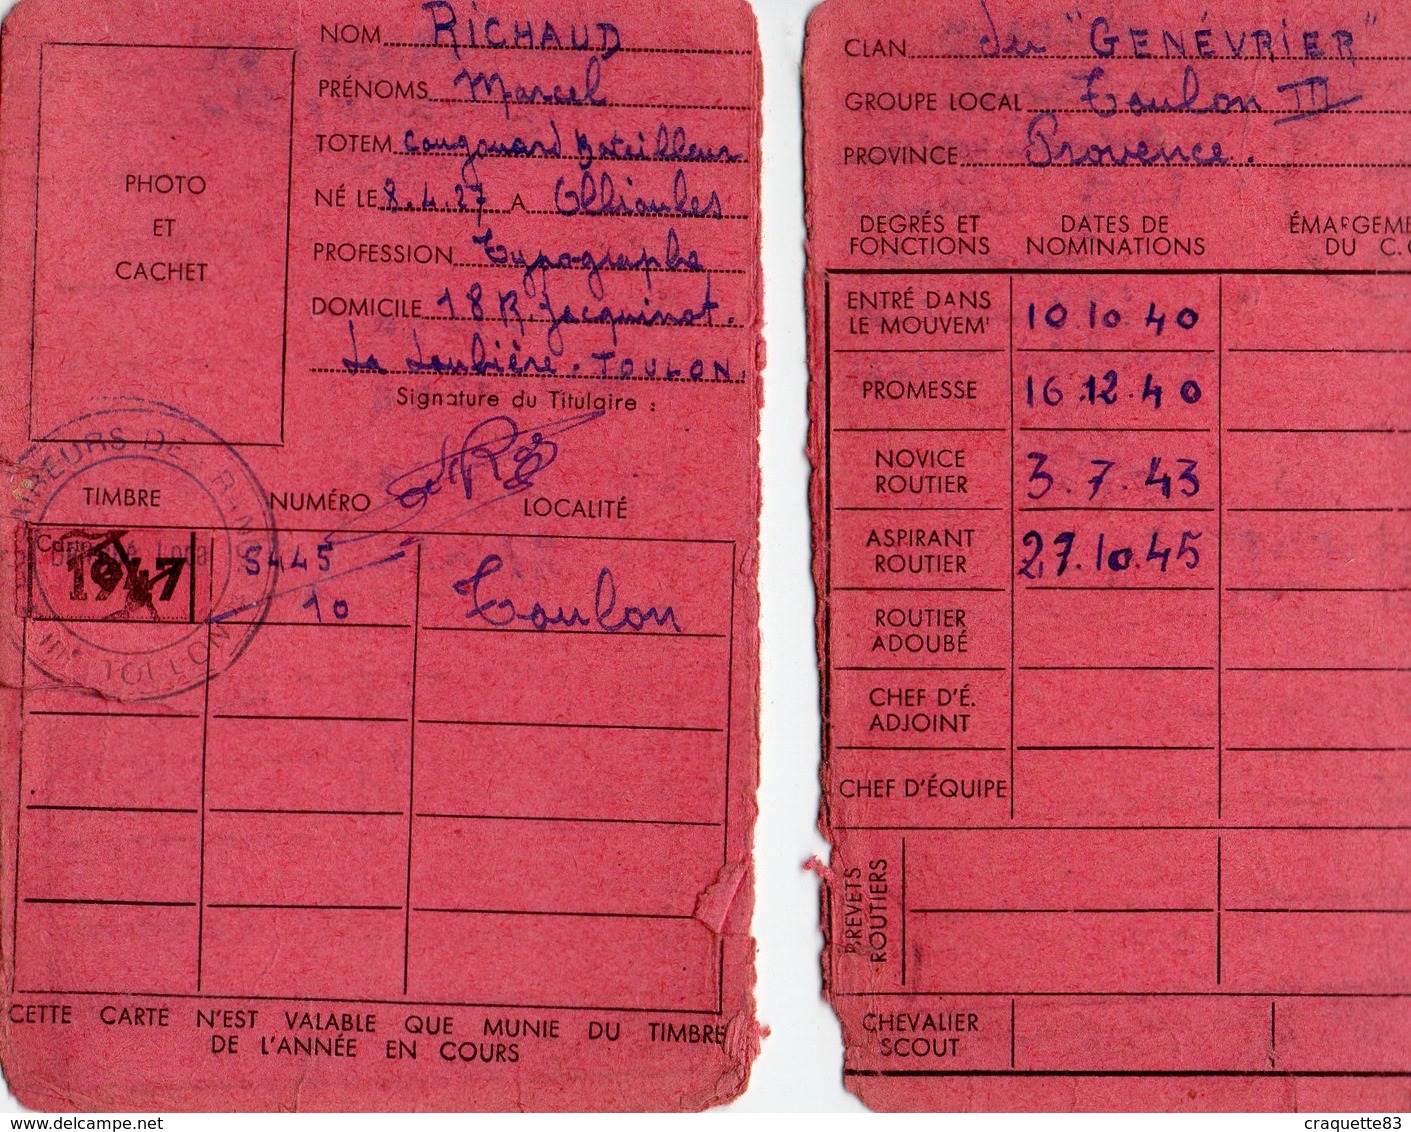 NOM RICHAUD
PRÉNOMS Marcel
TOTEM Cougouard Batailleur
NÉ LE 8.4.27 A Ollioules
PROFESSION Typographe
DOMICILE 18 R. Jacquinot.
La Loubière. TOULON.
Signature du Titulaire :
PHOTO
ET
CACHET
TIMBRE NUMÉRO LOCALITÉ
1947 5445 Toulon
10
CETTE CARTE N'EST VALABLE QUE MUNIE DU TIMBRE
DE L'ANNÉE EN COURS
CLAN du "GENÉVRIER"
GROUPE LOCAL Toulon III
PROVINCE Provence.
DEGRÉS ET FONCTIONS DATES DE NOMINATIONS ÉMARGEME
DU C.C
ENTRÉ DANS LE MOUVEM' 10.10.40
PROMESSE 16.12.40
NOVICE ROUTIER 3.7.43
ASPIRANT ROUTIER 27.10.45
ROUTIER ADOUBÉ
CHEF D'É. ADJOINT
CHEF D'ÉQUIPE
BREVETS ROUTIERS
CHEVALIER SCOUT
craquette83